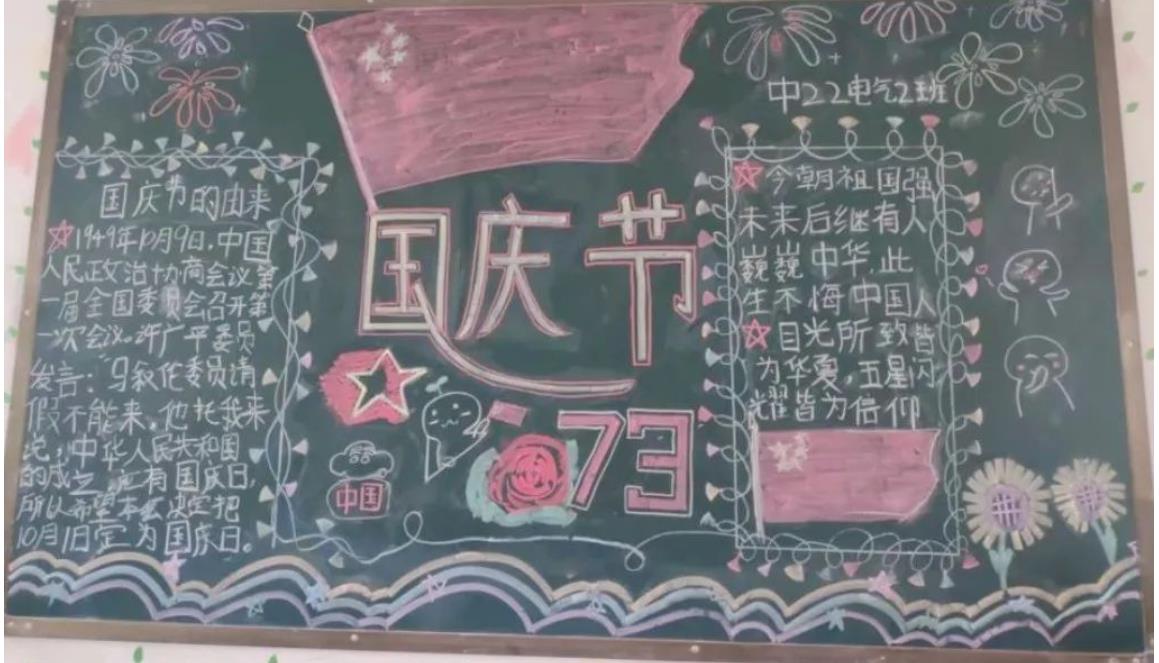 国庆节的由来
1949年10月9日，中国
人民政治协商会议第
一届全国委员会召开第
一次会议。许广平委员
发言：马叙伦委员请
假不能来，他托我来
说，中华人民共和国
的成立，应有国庆日，
所以希望本会决定把
10月1日定为国庆日。
国庆节
73
中国
中22电气2班
今朝祖国强
未来后继有人
巍巍中华，此
生不悔中国人
目光所致皆
为华夏，五星闪
耀皆为信仰